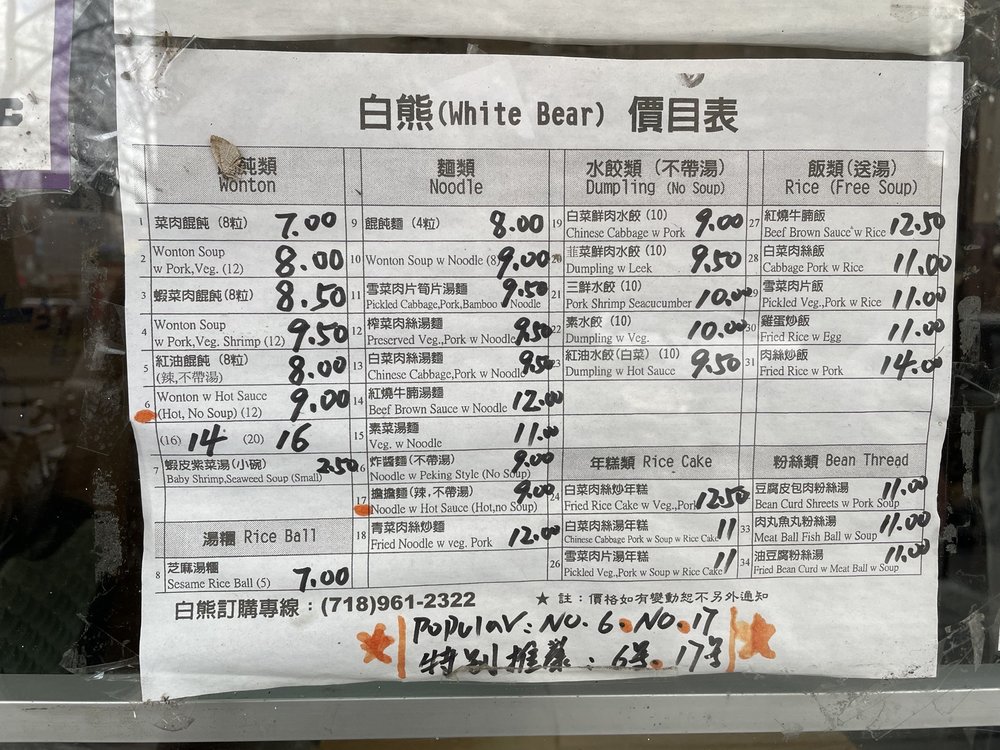 白熊(White Bear) 價目表
飩類
Wonton
1 菜肉餛飩 (8粒) 7.00
2 Wonton Soup
w Pork,Veg. (12) 8.00
3 蝦菜肉餛飩 (8粒) 8.50
4 Wonton Soup
w Pork,Veg. Shrimp (12) 9.50
5 紅油餛飩 (8粒)
(辣,不帶湯) 8.00
6 Wonton w Hot Sauce
(Hot, No Soup) (12) 9.00
(16) 14 (20) 16
7 蝦皮紫菜湯(小碗)
Baby Shrimp,Seaweed Soup (Small) 2.50
湯糰 Rice Ball
8 芝麻湯糰
Sesame Rice Ball (5) 7.00
麵類
Noodle
9 餛飩麵 (4粒) 8.00
10 Wonton Soup w Noodle (8) 9.00
11 雪菜肉片筍片湯麵
Pickled Cabbage,Pork,Bamboo Noodle 9.50
12 榨菜肉絲湯麵
Preserved Veg.,Pork w Noodle 9.50
13 白菜肉絲湯麵
Chinese Cabbage,Pork w Noodle 9.50
14 紅燒牛腩湯麵
Beef Brown Sauce w Noodle 12.00
15 素菜湯麵
Veg. w Noodle 11.00
16 炸醬麵(不帶湯)
Noodle w Peking Style (No Soup) 9.00
17 擔擔麵(辣,不帶湯)
Noodle w Hot Sauce (Hot,no Soup) 9.00
18 青菜肉絲炒麵
Fried Noodle w veg. Pork 12.00
水餃類 (不帶湯)
Dumpling (No Soup)
19 白菜鮮肉水餃 (10)
Chinese Cabbage w Pork 9.00
20 韮菜鮮肉水餃 (10)
Dumpling w Leek 9.50
21 三鮮水餃 (10)
Pork Shrimp Seacucumber 10.00
22 素水餃 (10)
Dumpling w Veg. 10.00
23 紅油水餃(白菜) (10)
Dumpling w Hot Sauce 9.50
年糕類 Rice Cake
24 白菜肉絲炒年糕
Fried Rice Cake w Veg.,Pork 12.50
白菜肉絲湯年糕
Chinese Cabbage Pork w Soup w Rice Cake 11
26 雪菜肉片湯年糕
Pickled Veg.,Pork w Soup w Rice Cake 11
飯類(送湯)
Rice (Free Soup)
27 紅燒牛腩飯
Beef Brown Sauce w Rice 12.50
28 白菜肉絲飯
Cabbage Pork w Rice 11.00
29 雪菜肉片飯
Pickled Veg.,Pork w Rice 11.00
30 雞蛋炒飯
Fried Rice w Egg 11.00
31 肉絲炒飯
Fried Rice w Pork 14.00
粉絲類 Bean Thread
豆腐皮包肉粉絲湯
Bean Curd Shreets w Pork Soup 11.00
33 肉丸魚丸粉絲湯
Meat Ball Fish Ball w Soup 11.00
34 油豆腐粉絲湯
Fried Bean Curd w Meat Ball w Soup 11.00
白熊訂購專線：(718)961-2322
★ 註：價格如有變動恕不另外通知
Popular: NO. 6. NO. 17
特別推薦：6号. 17号